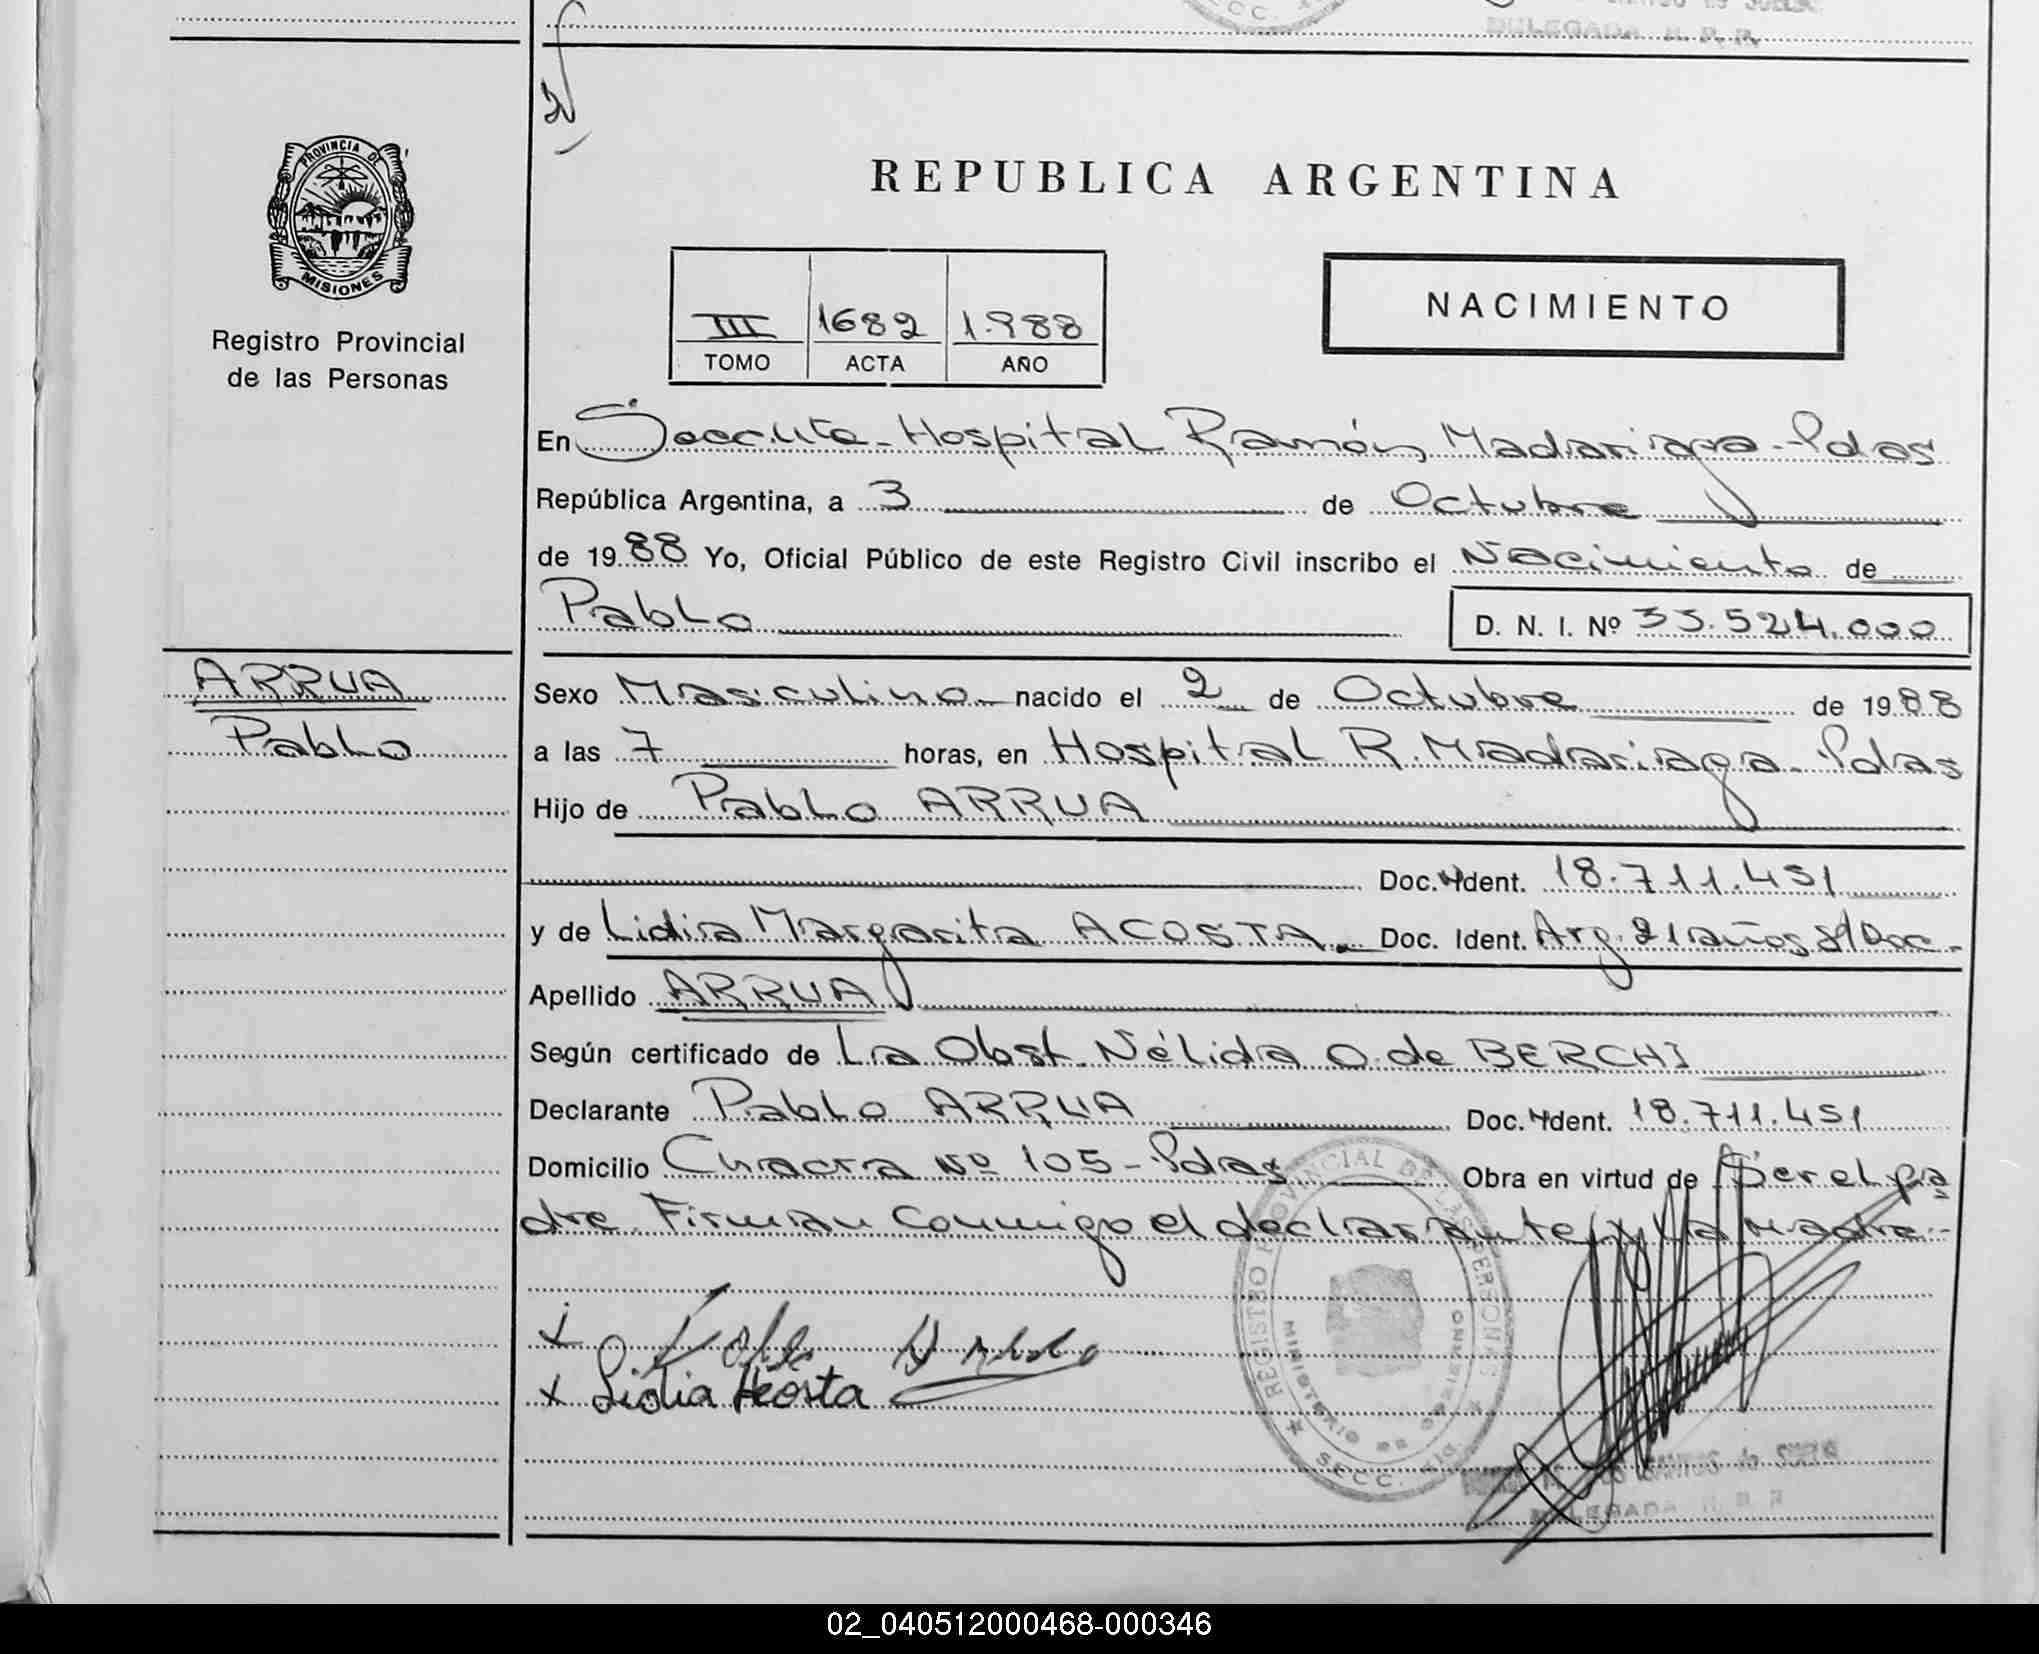 DELEGADA R. P. P.
PROVINCIA DE
MISIONES
Registro Provincial
de las Personas
REPUBLICA ARGENTINA
III 1682 1.988
TOMO ACTA AÑO
NACIMIENTO
En Secc. Hospital Ramón Madariaga - Pdas
República Argentina, a 3 de Octubre
de 19 88 Yo, Oficial Público de este Registro Civil inscribo el Nacimiento de
Pablo D. N. I. Nº 33.524.000
ARRUA
Pablo
Sexo Masculino nacido el 2 de Octubre de 19 88
a las 7 horas, en Hospital R. Madariaga - Pdas
Hijo de Pablo ARRUA
Doc. Ident. 18.711.451
y de Lidia Margarita ACOSTA. Doc. Ident. Arg. 21 años s/Doc.
Apellido ARRUA
Según certificado de La Obst. Nélida O. de BERCHI
Declarante Pablo ARRUA Doc. Ident. 18.711.451
Domicilio Chacra Nº 105 - Pdas Obra en virtud de Ser el pa
dre. Firman Conmigo el declarante y la Madre.-
x
x Lidia Acosta
REGISTRO PROVINCIAL DE LAS PERSONAS
MINISTERIO DE GOBIERNO
SECC.
SANTOS de
DELEGADA R. P. P.
02_040512000468-000346